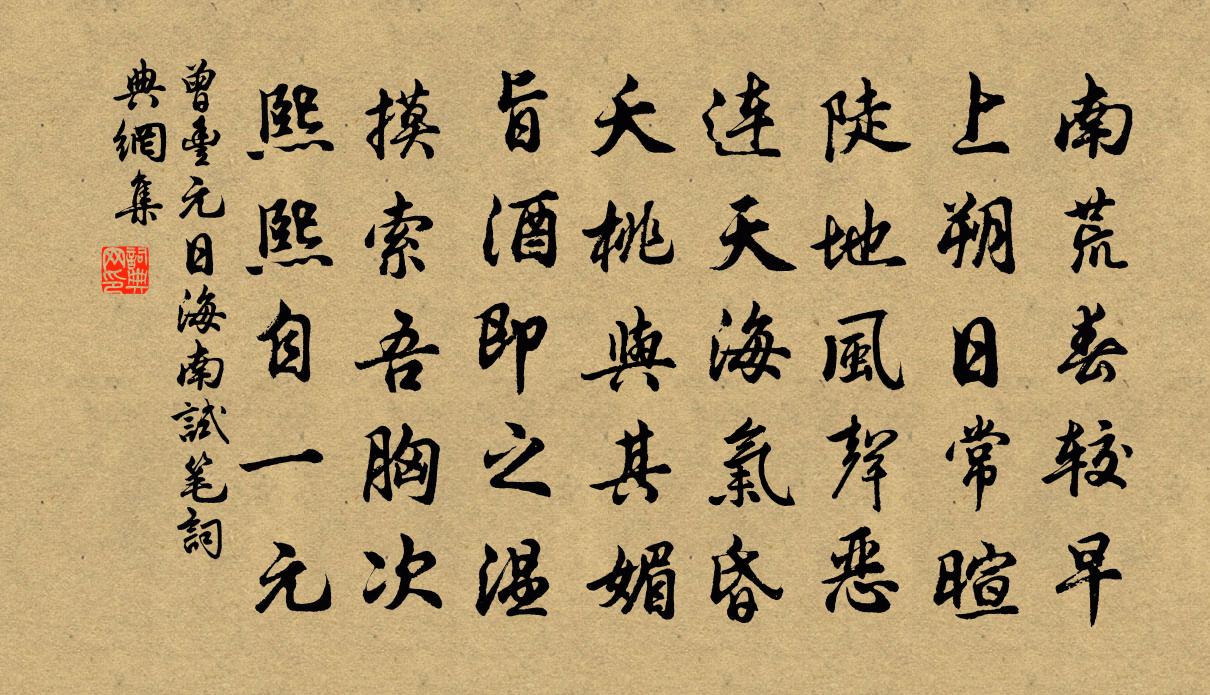 南荒春較早
上朔日常暄
陡地風聲惡
連天海氣昏
夭桃與其媚
旨酒即之溫
摸索吾胸次
熙熙自一元
曾豐元日海南試笔詞
典網集
詞典網印